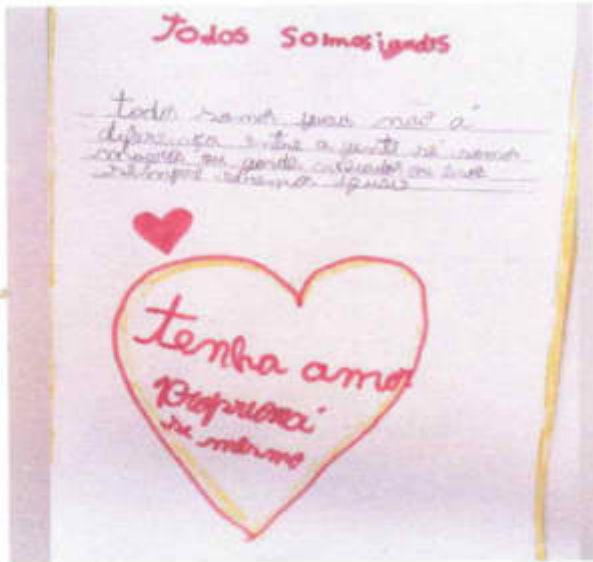 Todos somos iguais
todos somos iguais não á
diferença entre a gente se somos
magros ou gordo
sempre seremos iguais
tenha amor
proprio ná
se mesmo